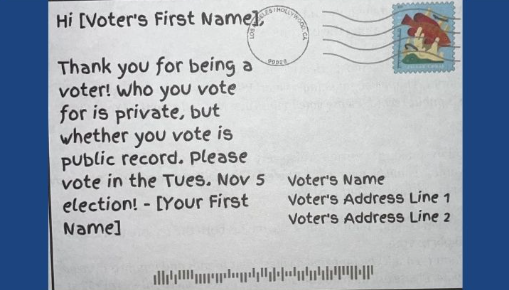 Hi [Voter's First Name],
Thank you for being a
voter! Who you vote
for is private, but
whether you vote is
public record. Please
vote in the Tues. Nov 5
election! - [Your First
Name]
HOLLYWOOD, CA
Voter's Name
Voter's Address Line 1
Voter's Address Line 2